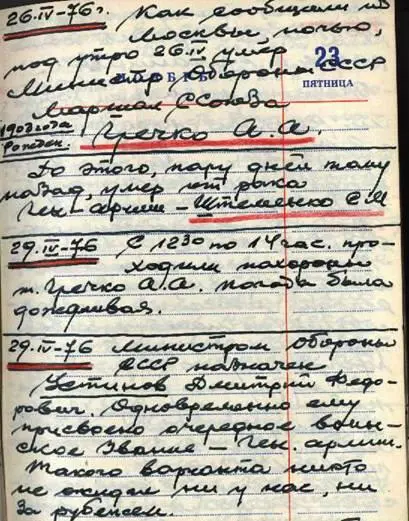 26.IV-76г. Как сообщили из
Москвы, ночью,
под утро 26.IV умер
Министр Обороны СССР
23
НОЯБРЬ
ПЯТНИЦА
Маршал С Союза
1903 года
Рожден.
Гречко А.А.
До этого, пару дней тому
назад, умер от рака
Ген-армии - Штеменко С.М
29.IV-76 С 12³⁰ по 14 час. про-
ходили похороны
т. Гречко А.А. погода была
дождливая.
29.IV-76 Министром обороны
СССР назначен
Устинов Дмитрий Федо-
рович. Одновременно ему
присвоено очередное воин-
ское звание - Ген. армии.
Такого варианта никто
не ожидал ни у нас, ни
за рубежом.